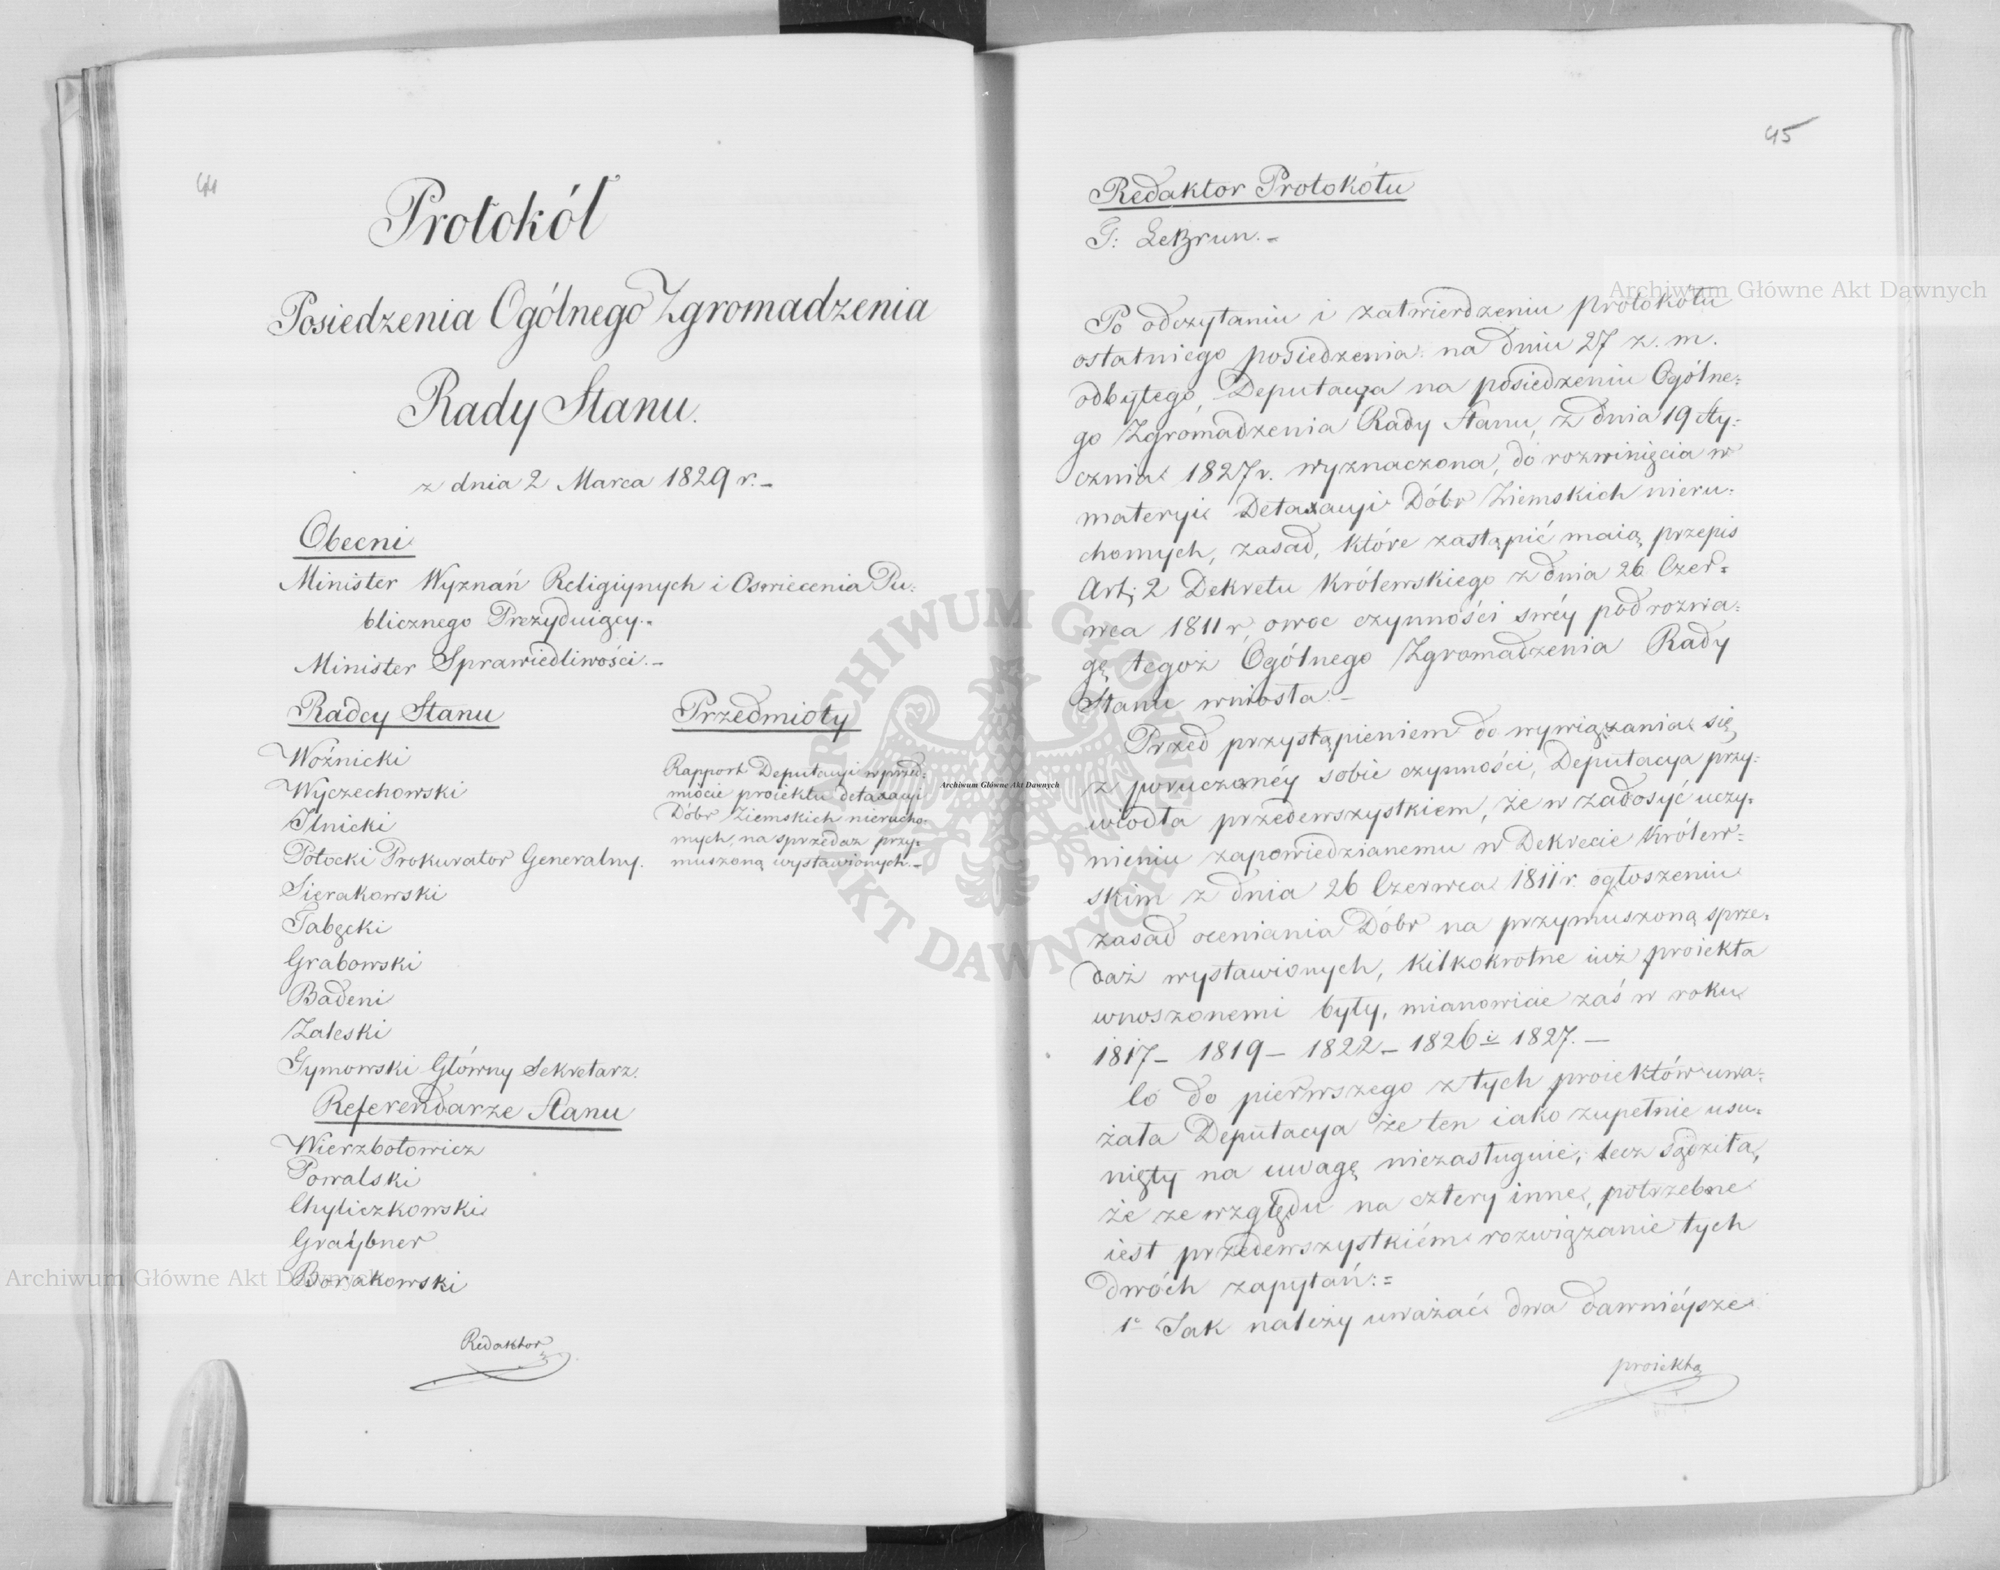 44
Protokół
Posiedzenia Ogólnego Zgromadzenia
Rady Stanu.
z dnia 2 Marca 1829 r.-
Obecni
Minister Wyznań Religiynych i Oswiecenia Pu:
blicznego Prezyduiący.-
Minister Sprawiedliwości.-
Radcy Stanu
Woźnicki
Wyczechowski
Ilnicki
Potocki Prokurator Generalny.
Sierakowski
Tabęcki
Grabowski
Badeni
Zaleski
Tymowski Główny Sekretarz.
Referendarze Stanu
Wierzbołowicz
Powalski
Chyliczkowski
Graybner
Borakowski
Przedmioty
Rapport Deputacyi w przed:
miocie proiektu detaxacyi
Dóbr Ziemskich nierucho:
mych, na sprzedaż przy:
muszoną wystawionych.-
Redaktor
45
Redaktor Protokółu
T: LeBrun.-
Po odczytaniu i zatwierdzeniu protokółu
ostatniego posiedzenia na dniu 27 z. m.
odbytego, Deputacya na posiedzeniu Ogólne:
go Zgromadzenia Rady Stanu, z dnia 19 Sty:
cznia 1827 r. wyznaczona, do rozwinięcia w
materyi Detaxacyi Dóbr Ziemskich nieru:
chomych, zasad, które zastąpić maią przepis
Art: 2 Dekretu Królewskiego z dnia 26 Czer=
wca 1811 r, owoc czynności swéy pod rozwa:
gę tegoż Ogólnego Zgromadzenia Rady
Stanu wniosła.-
Przed przystąpieniem do wywiązania się
z poruczonéy sobie czynności, Deputacya przy:
wiodła przedewszystkiem, że w zadosyć uczy:
nieniu zapowiedzianemu w Dekrecie Królew:
skim z dnia 26 Czerwca 1811 r. ogłoszeniu
zasad oceniania Dóbr na przymuszoną sprze:
daż wystawionych, kilkokrotne iuż proiekta
wnoszonemi były, mianowicie zaś w roku
1817- 1819- 1822- 1826 i 1827.-
Co do pierwszego z tych proiektów uwa:
żała Deputacya że ten iako zupełnie usu:
nięty na uwagę niezasługuie, lecz sądziła,
że ze względu na cztery inne, potrzebne
iest przedewszystkiém rozwiązanie tych
dwóch zapytań:=
1° Jak należy uważać dwa dawnieysze
proiekta
Archiwum Główne Akt Dawnych
Archiwum Główne Akt Dawnych
Archiwum Główne Akt Dawnych
ARCHIWUM GŁÓWNE AKT DAWNYCH